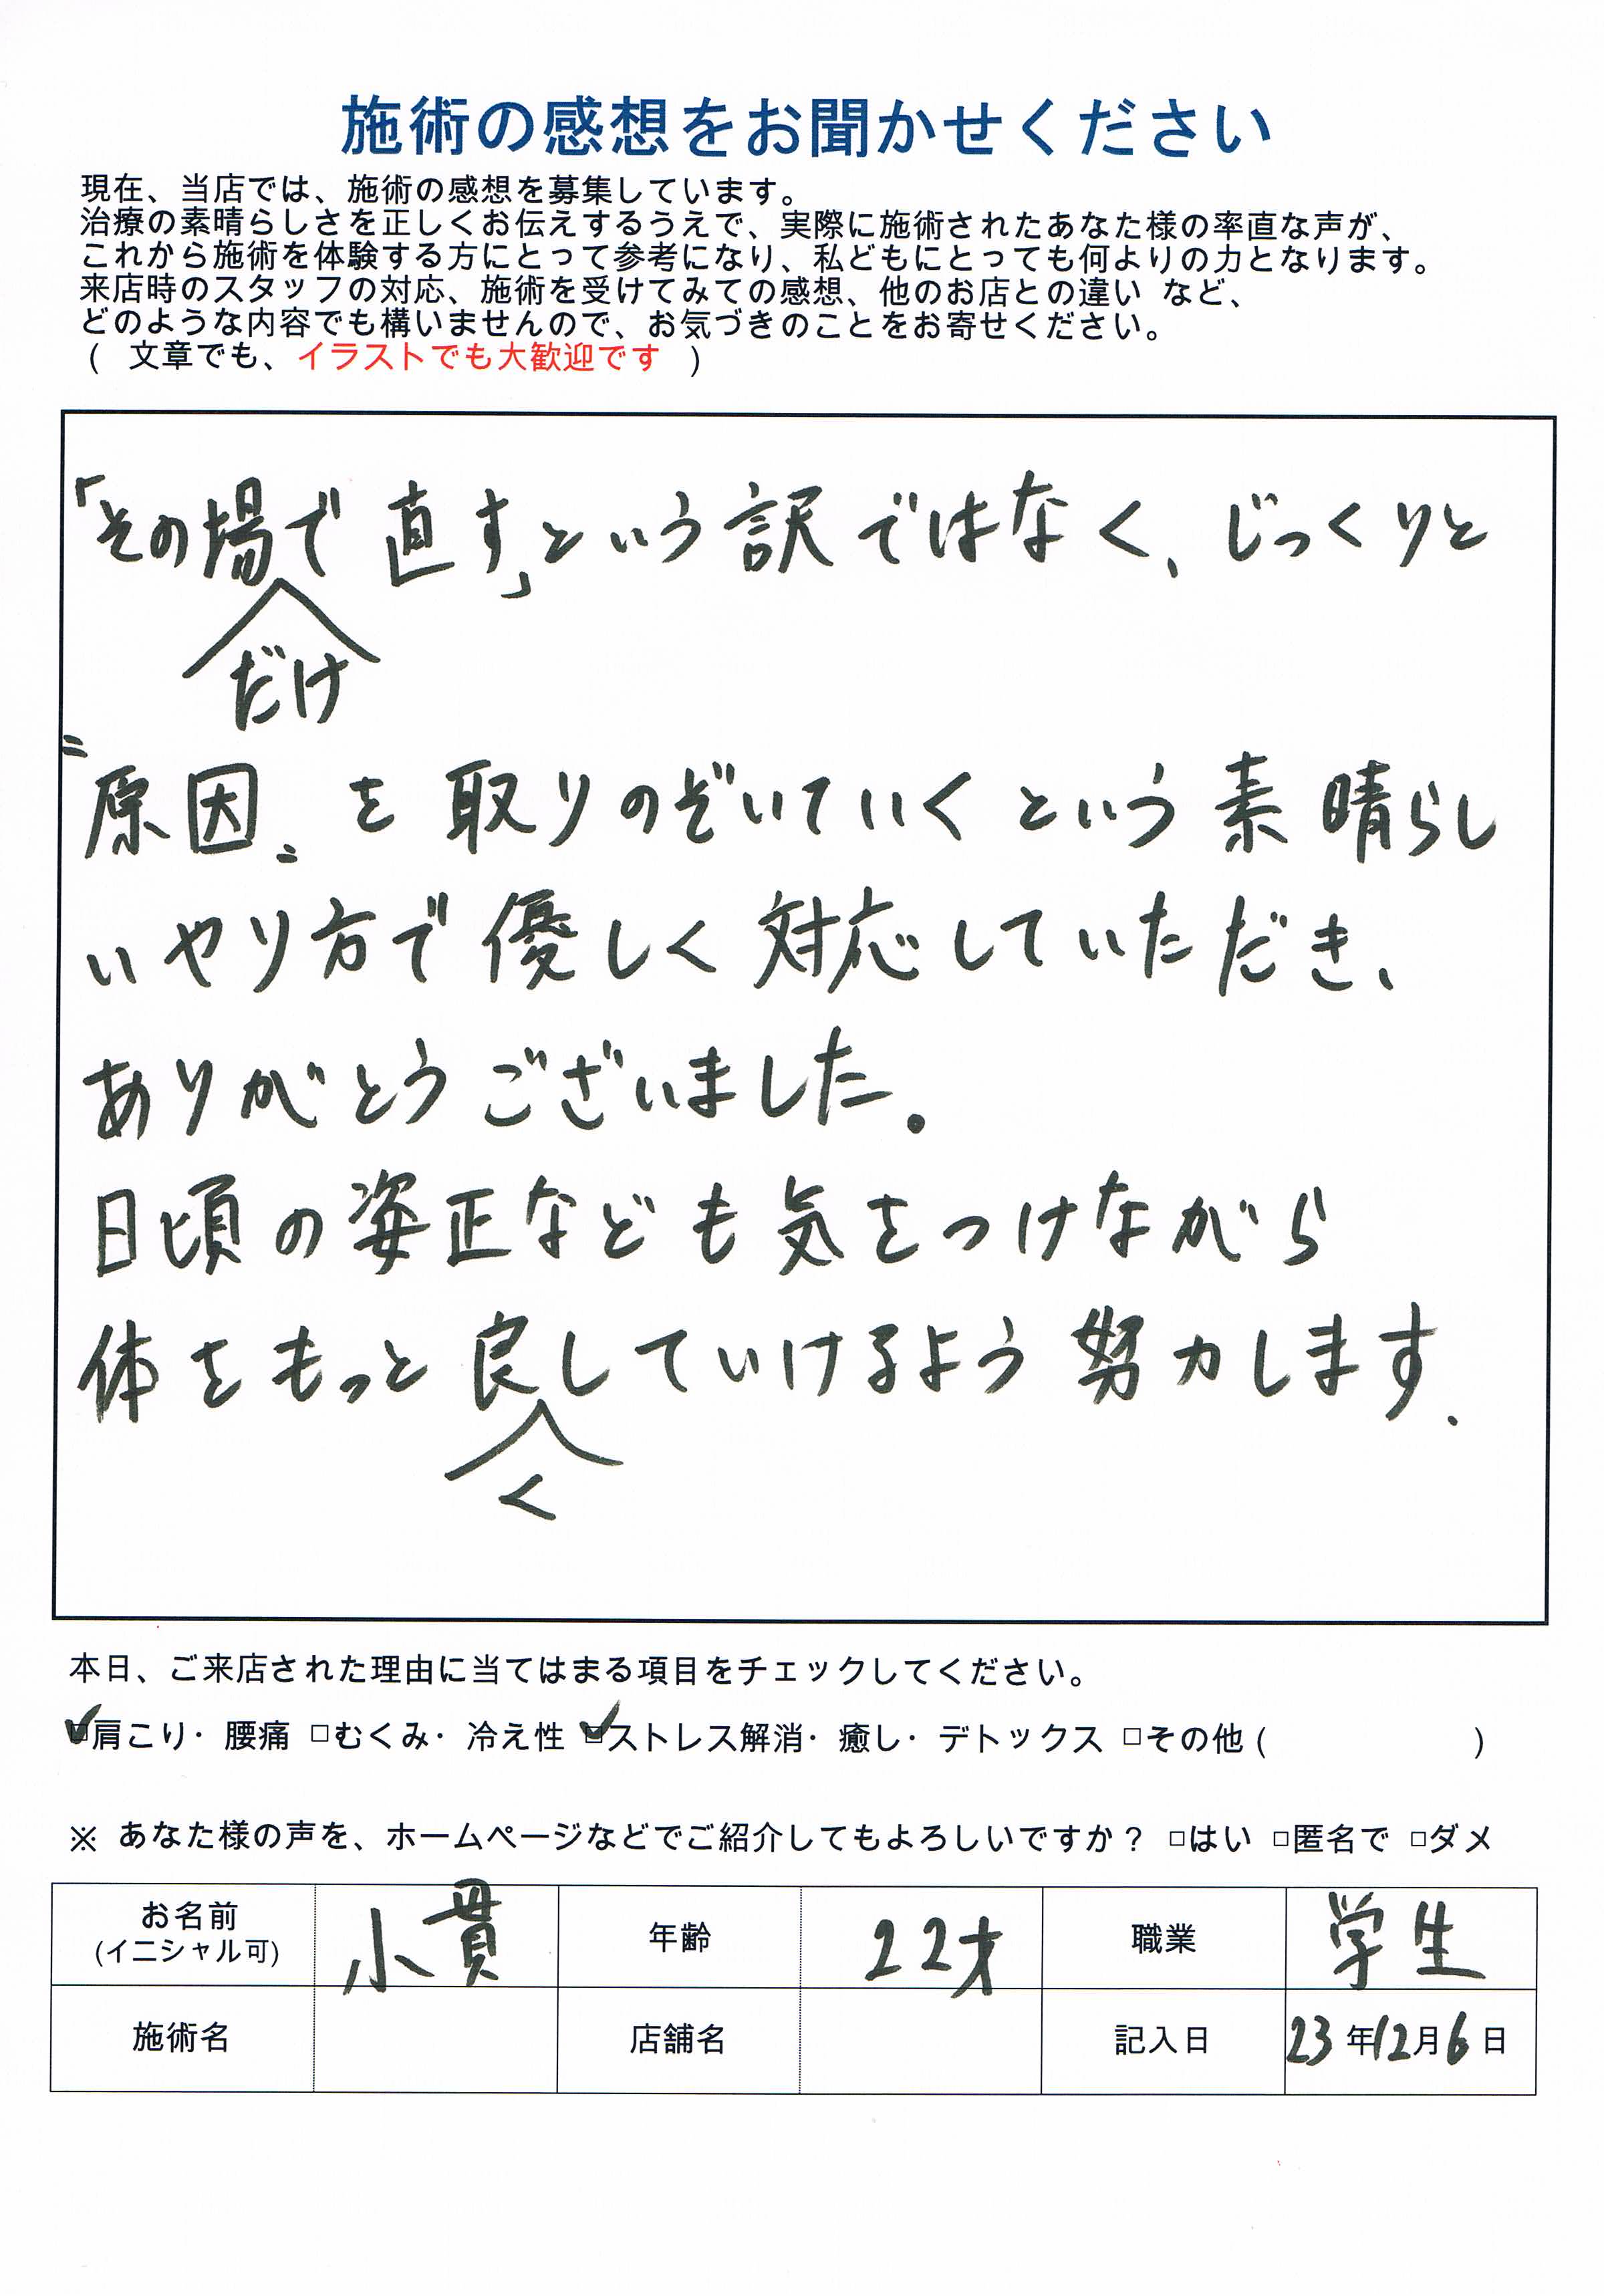 施術の感想をお聞かせください
現在、当店では、施術の感想を募集しています。
治療の素晴らしさを正しくお伝えするうえで、実際に施術されたあなた様の率直な声が、
これから施術を体験する方にとって参考になり、私どもにとっても何よりの力となります。
来店時のスタッフの対応、施術を受けてみての感想、他のお店との違い など、
どのような内容でも構いませんので、お気づきのことをお寄せください。
( 文章でも、イラストでも大歓迎です )
「その場で直す」という訳ではなく、じっくりと
だけ
"原因"を取りのぞいていくという素晴らし
いやり方で優しく対応していただき、
ありがとうございました。
日頃の姿正なども気をつけながら
体をもっと良していけるよう努力します.
く
本日、ご来店された理由に当てはまる項目をチェックしてください。
☑肩こり・腰痛 □むくみ・冷え性 ☑ストレス解消・癒し・デトックス □その他 ( )
※ あなた様の声を、ホームページなどでご紹介してもよろしいですか？ □はい □匿名で □ダメ
お名前 小貫 年齢 22才 職業 学生
(イニシャル可)
施術名 店舗名 記入日 23年12月6日